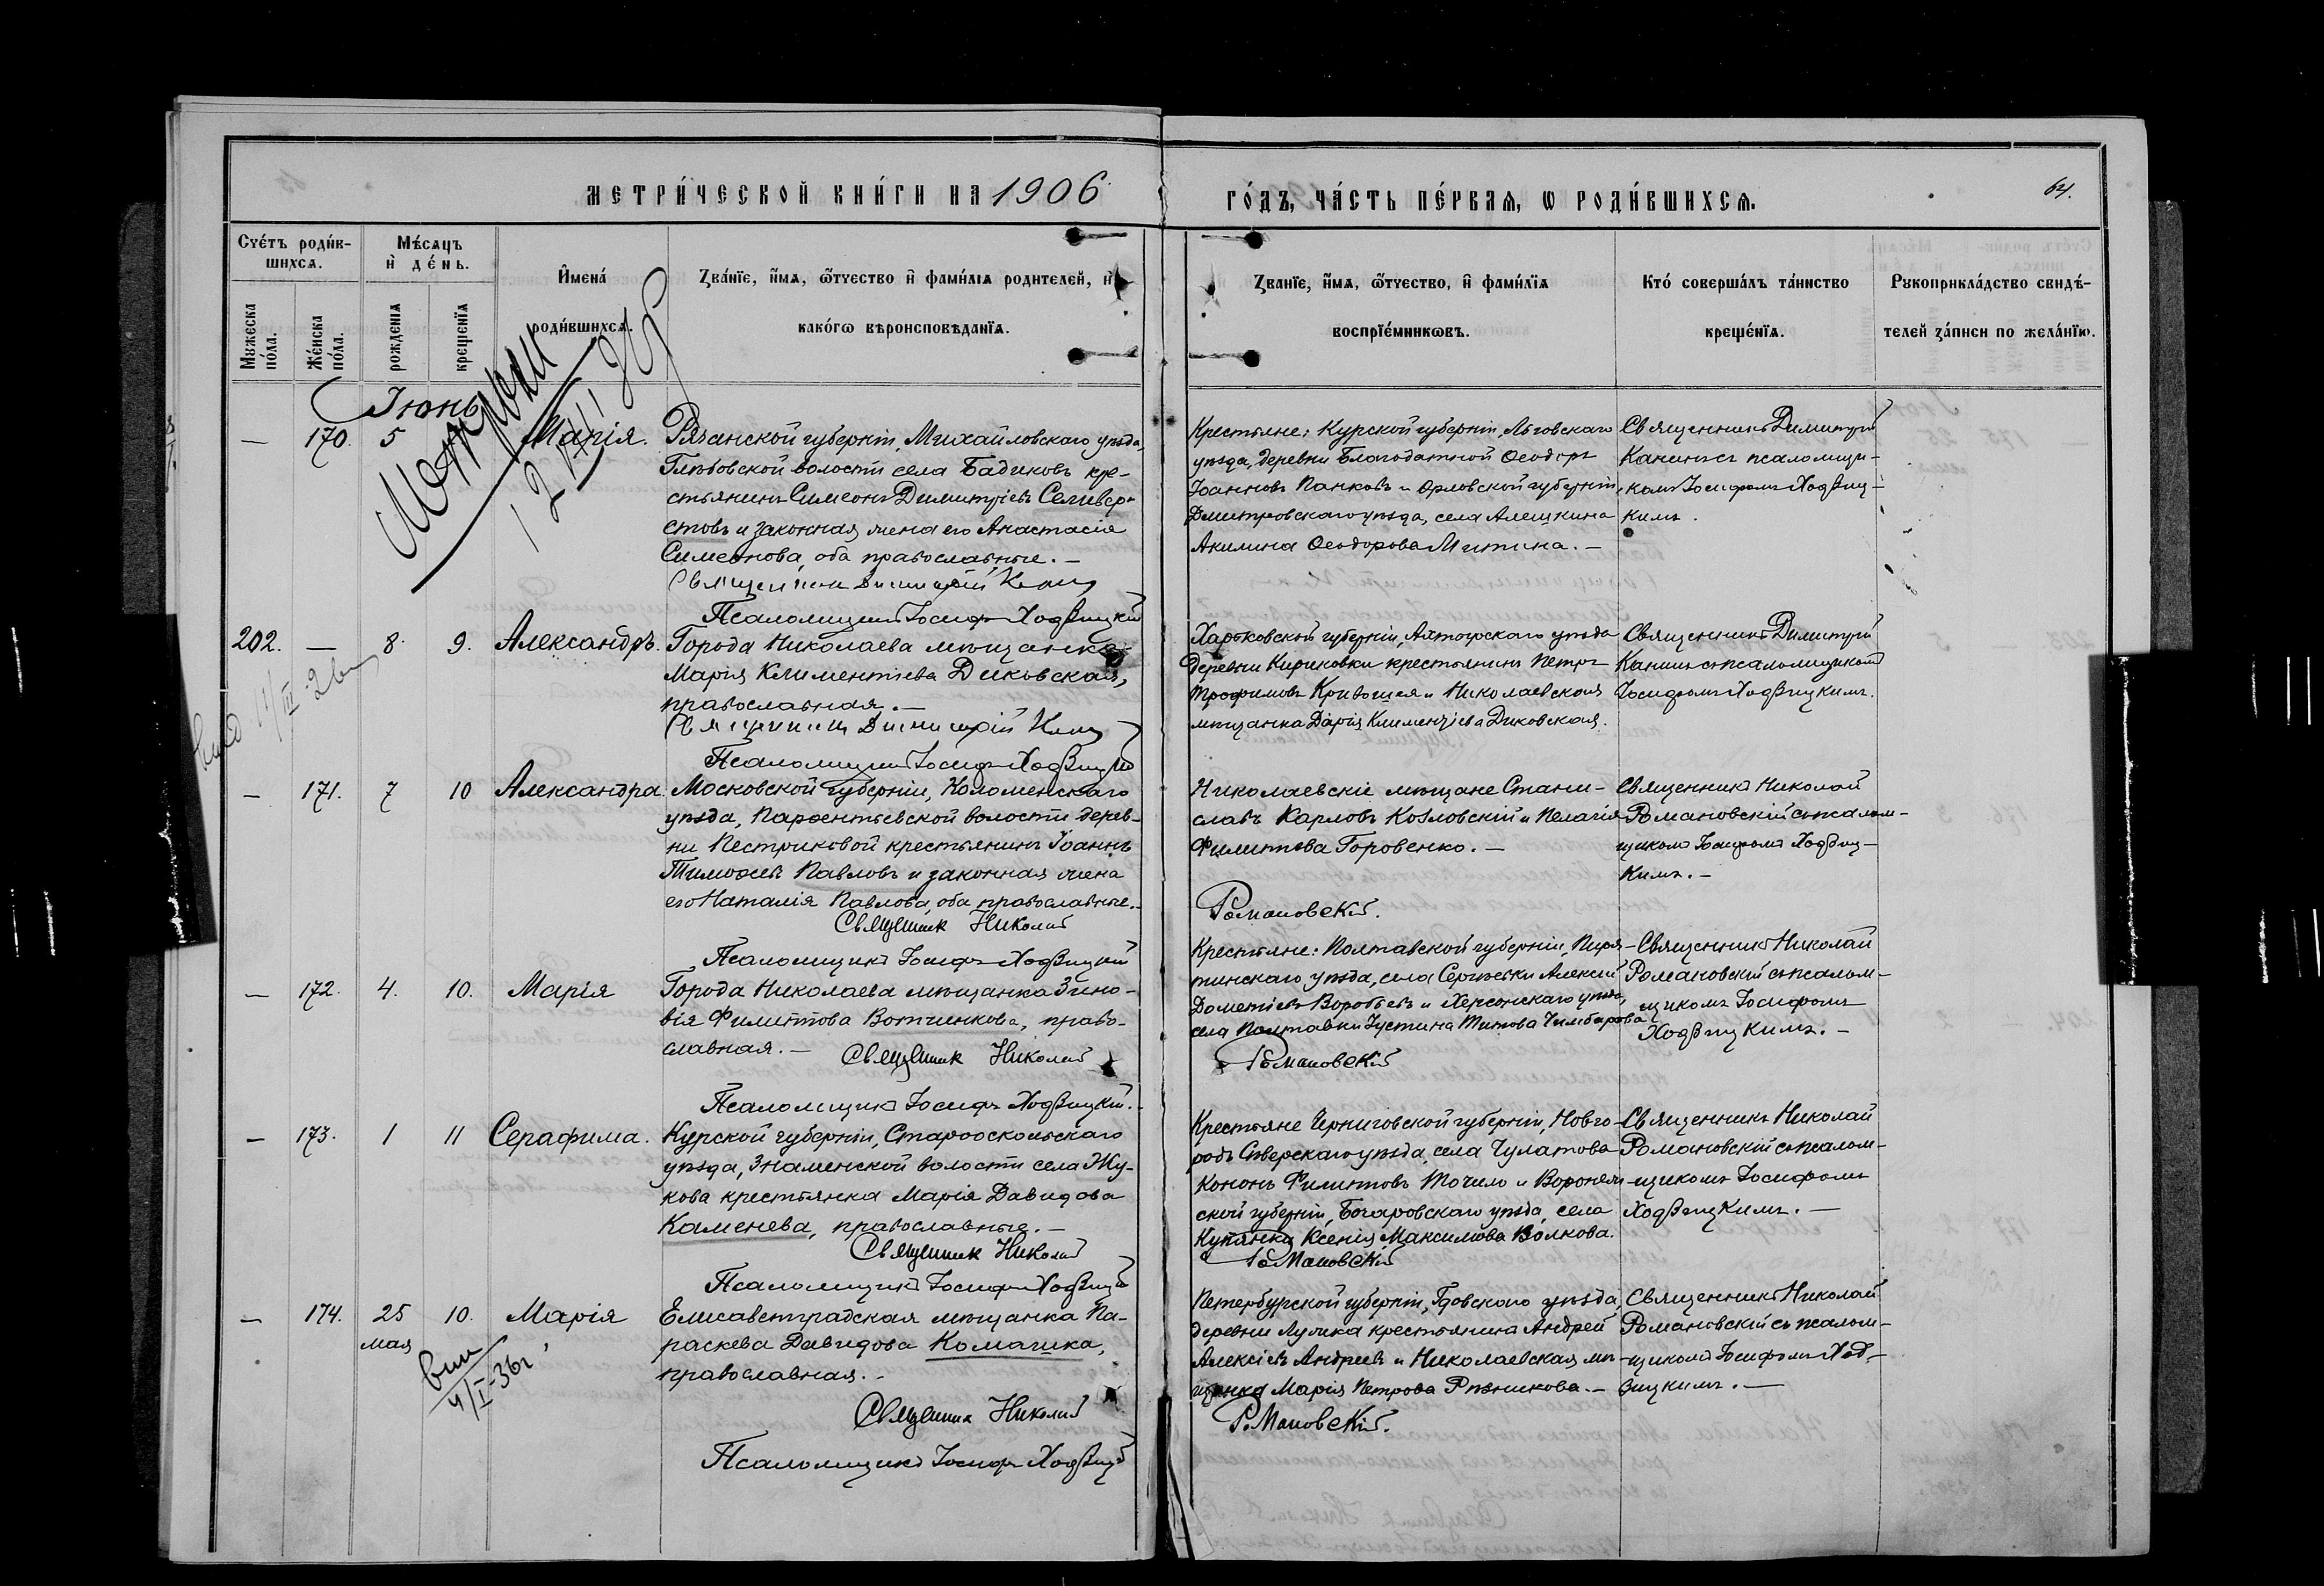 МЕТРИ́ЧЕСКОЙ КНИ́ГИ НА 1906
ГО́ДЪ, ЧА́СТЬ ПЕ́РВАѦ, Ѡ РОДИ́ВШИХСѦ.
64.
Сче́тъ роди́в-
шихсѧ.
Мꙋжеска по́ла.
Же́нска по́ла.
Мѣ́сѧцъ
и де́нь.
рожденїѧ
крещенїѧ
Имена́
роди́вшихсѧ.
Зва́нїе, и́мѧ, ѻ҆́тчество и фами́лїѧ родителей, и
како́гѡ вѣроисповѣданїѧ.
Зва́нїе, и́мѧ, ѻ҆́тчество, и фами́лїѧ
воспрїе́мникѡвъ.
Кто́ соверша́лъ та́инство
креще́нїѧ.
Рꙋкоприкла́дство свидѣ́-
телей за́писи по жела́нїю.
Іюнь
— 170. 5 Марія.
Рязанской губерніи, Михайловскаго уѣзда,
Глѣбовской волости села Бадиковъ кре-
стьянинъ Симеонъ Димитріевъ Селивер-
стовъ и законная жена его Анастасія
Симеонова, оба православные. —
Священникъ Димитрій
Псаломщикъ Іосифъ Ходзицкій
Крестьяне: Курской губерніи, Льговскаго
уѣзда, деревни Благодатной Ѳеодоръ
Іоанновъ Панковъ и Орловской губерніи,
Дмитровскаго уѣзда, села Алешкина
Акилина Ѳеодорова Митина. —
Священникъ Димитрій
Канинъ съ псаломщи-
комъ Іосифомъ Ходзиц-
кимъ.
202. — 8. 9. Александръ.
Города Николаева мѣщанка
Марія Климентіева Диковская,
православная. —
Священникъ Димитрій
Псаломщикъ Іосифъ Ходзицкій
Харьковской губерніи, Ахтырскаго уѣзда
деревни Кириковки крестьянинъ Петръ
Трофимовъ Кривошея и Николаевская
мѣщанка Дарія Климентіева Диковская.
Священникъ Димитрій
Канинъ съ псаломщикомъ
Іосифомъ Ходзицкимъ.
— 171. 7 10 Александра.
Московской губерніи, Коломенскаго
уѣзда, Парѳентьевской волости дерев-
ни Пестриковой крестьянинъ Іоаннъ
Тимоѳеевъ Павловъ и законная жена
его Наталія Павлова, оба православные. —
Священник Николай
Псаломщикъ Іосифъ Ходзицкій
Николаевскіе мѣщане Стани-
славъ Карловъ Козловскій и Пелагія
Филиппова Горовенко. —
Романовскій.
Священникъ Николай
Романовскій съ псалом-
щикомъ Іосифомъ Ходзиц-
кимъ. —
— 172. 4. 10. Марія
Города Николаева мѣщанка Зино-
вія Филиппова Вотченкова, право-
славная. —
Священник Николай
Псаломщикъ Іосифъ Ходзицкій.
Крестьяне: Полтавской губерніи, Пиря-
тинскаго уѣзда, села Сергѣевки Алексій
Дометіевъ Воробьевъ и Херсонскаго уѣзда,
села Полтавки Іустина Титова Чимбарова
Романовскій
Священникъ Николай
Романовскій съ псалом-
щикомъ Іосифомъ
Ходзицкимъ. —
— 173. 1 11 Серафима.
Курской губерніи, Старооскольскаго
уѣзда, Знаменской волости села Жу-
кова крестьянка Марія Давидова
Каменева, православныя. —
Священник Николай
Псаломщикъ Іосифъ Ходзицкій
Крестьяне Черниговской губерніи, Новго-
родъ Сѣверскаго уѣзда, села Чулатова
Кононъ Филипповъ Точило и Воронеж-
ской губерніи, Богаровскаго уѣзда, села
Купянка Ксенія Максимова Волкова.
Романовскій
Священникъ Николай
Романовскій съ псалом-
щикомъ Іосифомъ
Ходзицкимъ. —
— 174. 25 мая 10. Марія
Елисаветградская мѣщанка Па-
раскева Давидова Комашка,
православная. —
Священник Николай
Псаломщикъ Іосифъ Ходзицкій
Петербурской губерніи, Гдовскаго уѣзда,
деревни Лужка крестьянина Андрей
Алексіевъ Андреевъ и Николаевская мѣ-
щанка Марія Петрова Рѣзникова. —
Романовскій.
Священникъ Николай
Романовскій съ псалом-
щикомъ Іосифомъ Ход-
зицкимъ. —